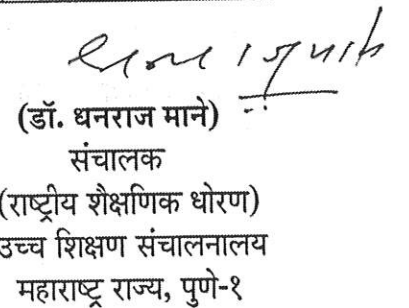 (डॉ. धनराज माने)
संचालक
(राष्ट्रीय शैक्षणिक धोरण)
उच्च शिक्षण संचालनालय
महाराष्ट्र राज्य, पुणे-१